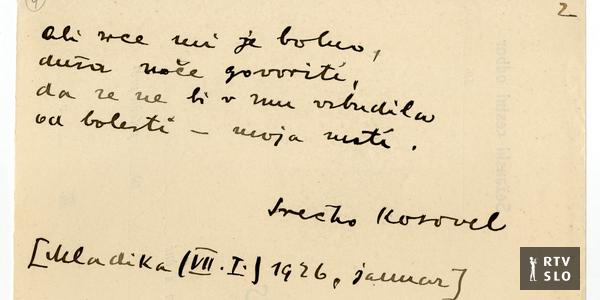 4
2
ali srce mi je bolno,
duša noče govoriti,
da se ne bi v snu vzbudila
od bolesti – moja nisti.
Srečko Kosovel
[Mladika (VII. I.) 1926, januar]
RTV
SLO